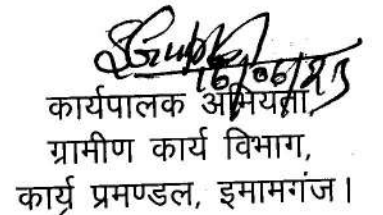 16/06/23
कार्यपालक अभियंता,
ग्रामीण कार्य विभाग,
कार्य प्रमण्डल, इमामगंज।